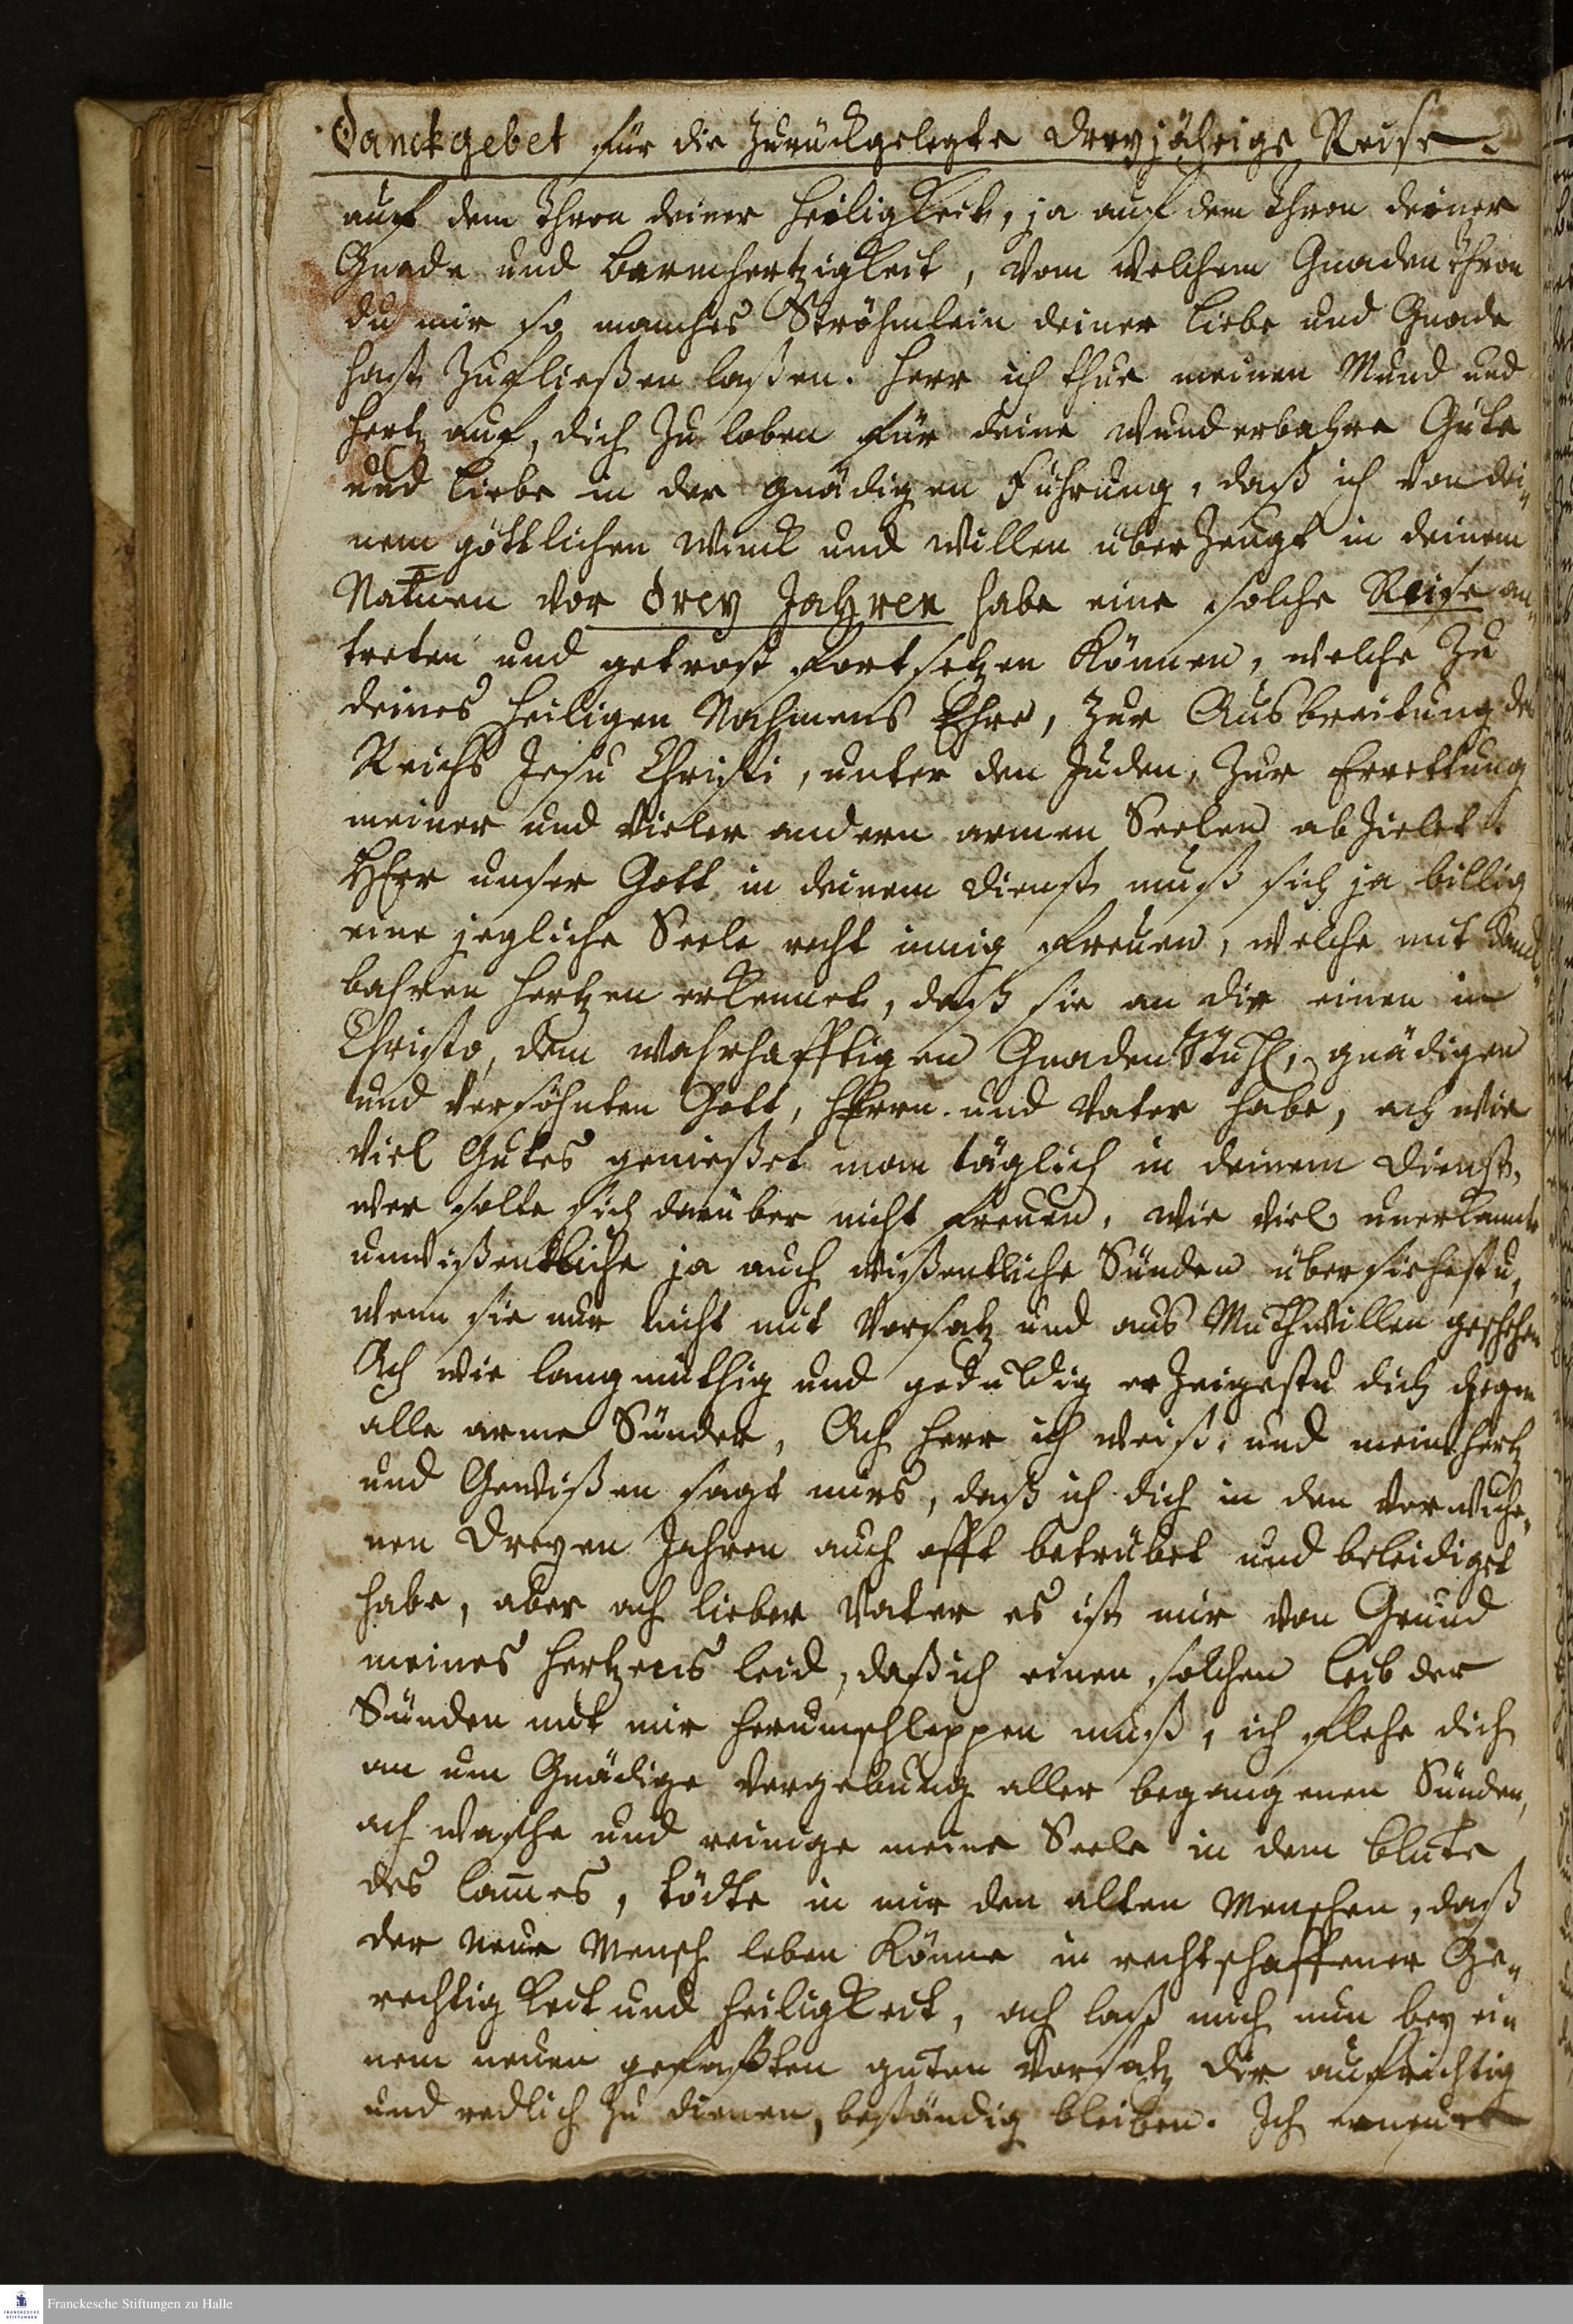 Danckgebet für die zurückgelegte dreyjährige Reise.
auf dem Thron deiner Heiligkeit, ja auf dem Thron deiner
Gnade und Barmhertzigkeit, vom welchem Gnadenthron
du mir so manches Ströhmlein deiner Liebe und Gnade
hast zufließen laßen. Herr ich thue meinen Mund und
Hertz auf, dich zu loben für deine wunderbahre Güte
und Liebe in der gnädigen Führung, daß ich von dei¬
nem göttlichen Winck und Willen überzeugt in deinem
Namen vor drey Jahren habe eine solche Reise an¬
treten und getrost fortsetzen können, welche zu
deines heiligen Nahmens Ehre, zur Ausbreitung des
Reichs Jesu Christi, unter den Juden, zur Errettung
meiner und vieler andern armen Seelen abzielet.
HErr unser Gott in deinem Dienst muß sich ja billig
eine jegliche Seele recht innig freuen, welche mit danck¬
bahren Hertzen erkennet, daß sie an dir einen in
Christo, dem wahrhafftigen GnadenStuhl, gnädigen
und versöhnten Gott, HErrn und Vater habe, ach wie
viel Gutes genießet man täglich in deinem Dienst,
wer solte sich darüber nicht freuen, wie viel unerkannte
unwißentliche ja auch wißentliche Sünden übersiehestu,
wenn sie nur nicht mit Vorsatz und aus Muthwillen geschehen
Ach wie langmüthig und geduldig erzeigestu dich gegen
alle arme Sünder, Ach Herr ich weiß, und mein Hertz
und Gewißen sagt mirs, daß ich dich in den verwiche¬
nen dreyen Jahren auch offt betrübet und beleidiget
habe, aber ach lieber Vater es ist mir von Grund
meines Hertzens leid, daß ich einen solchen Leib der
Sünden mit mir herumschleppen muß, ich flehe dich
an um Gnädige Vergebung aller begangenen Sünden,
ach wasche und reinige meine Seele in dem Blute
des Lam̄es, tödte in mir den alten Menschen, daß
der neue Mensch leben könne in rechtschaffener Ge¬
rechtigkeit und Heiligkeit, ach laß mich nun bey ei¬
nem neuen gefaßten guten Vorsatz dir aufrichtig
und redlich zu dienen, beständig bleiben. Ich erneure
Franckesche Stiftungen zu Halle